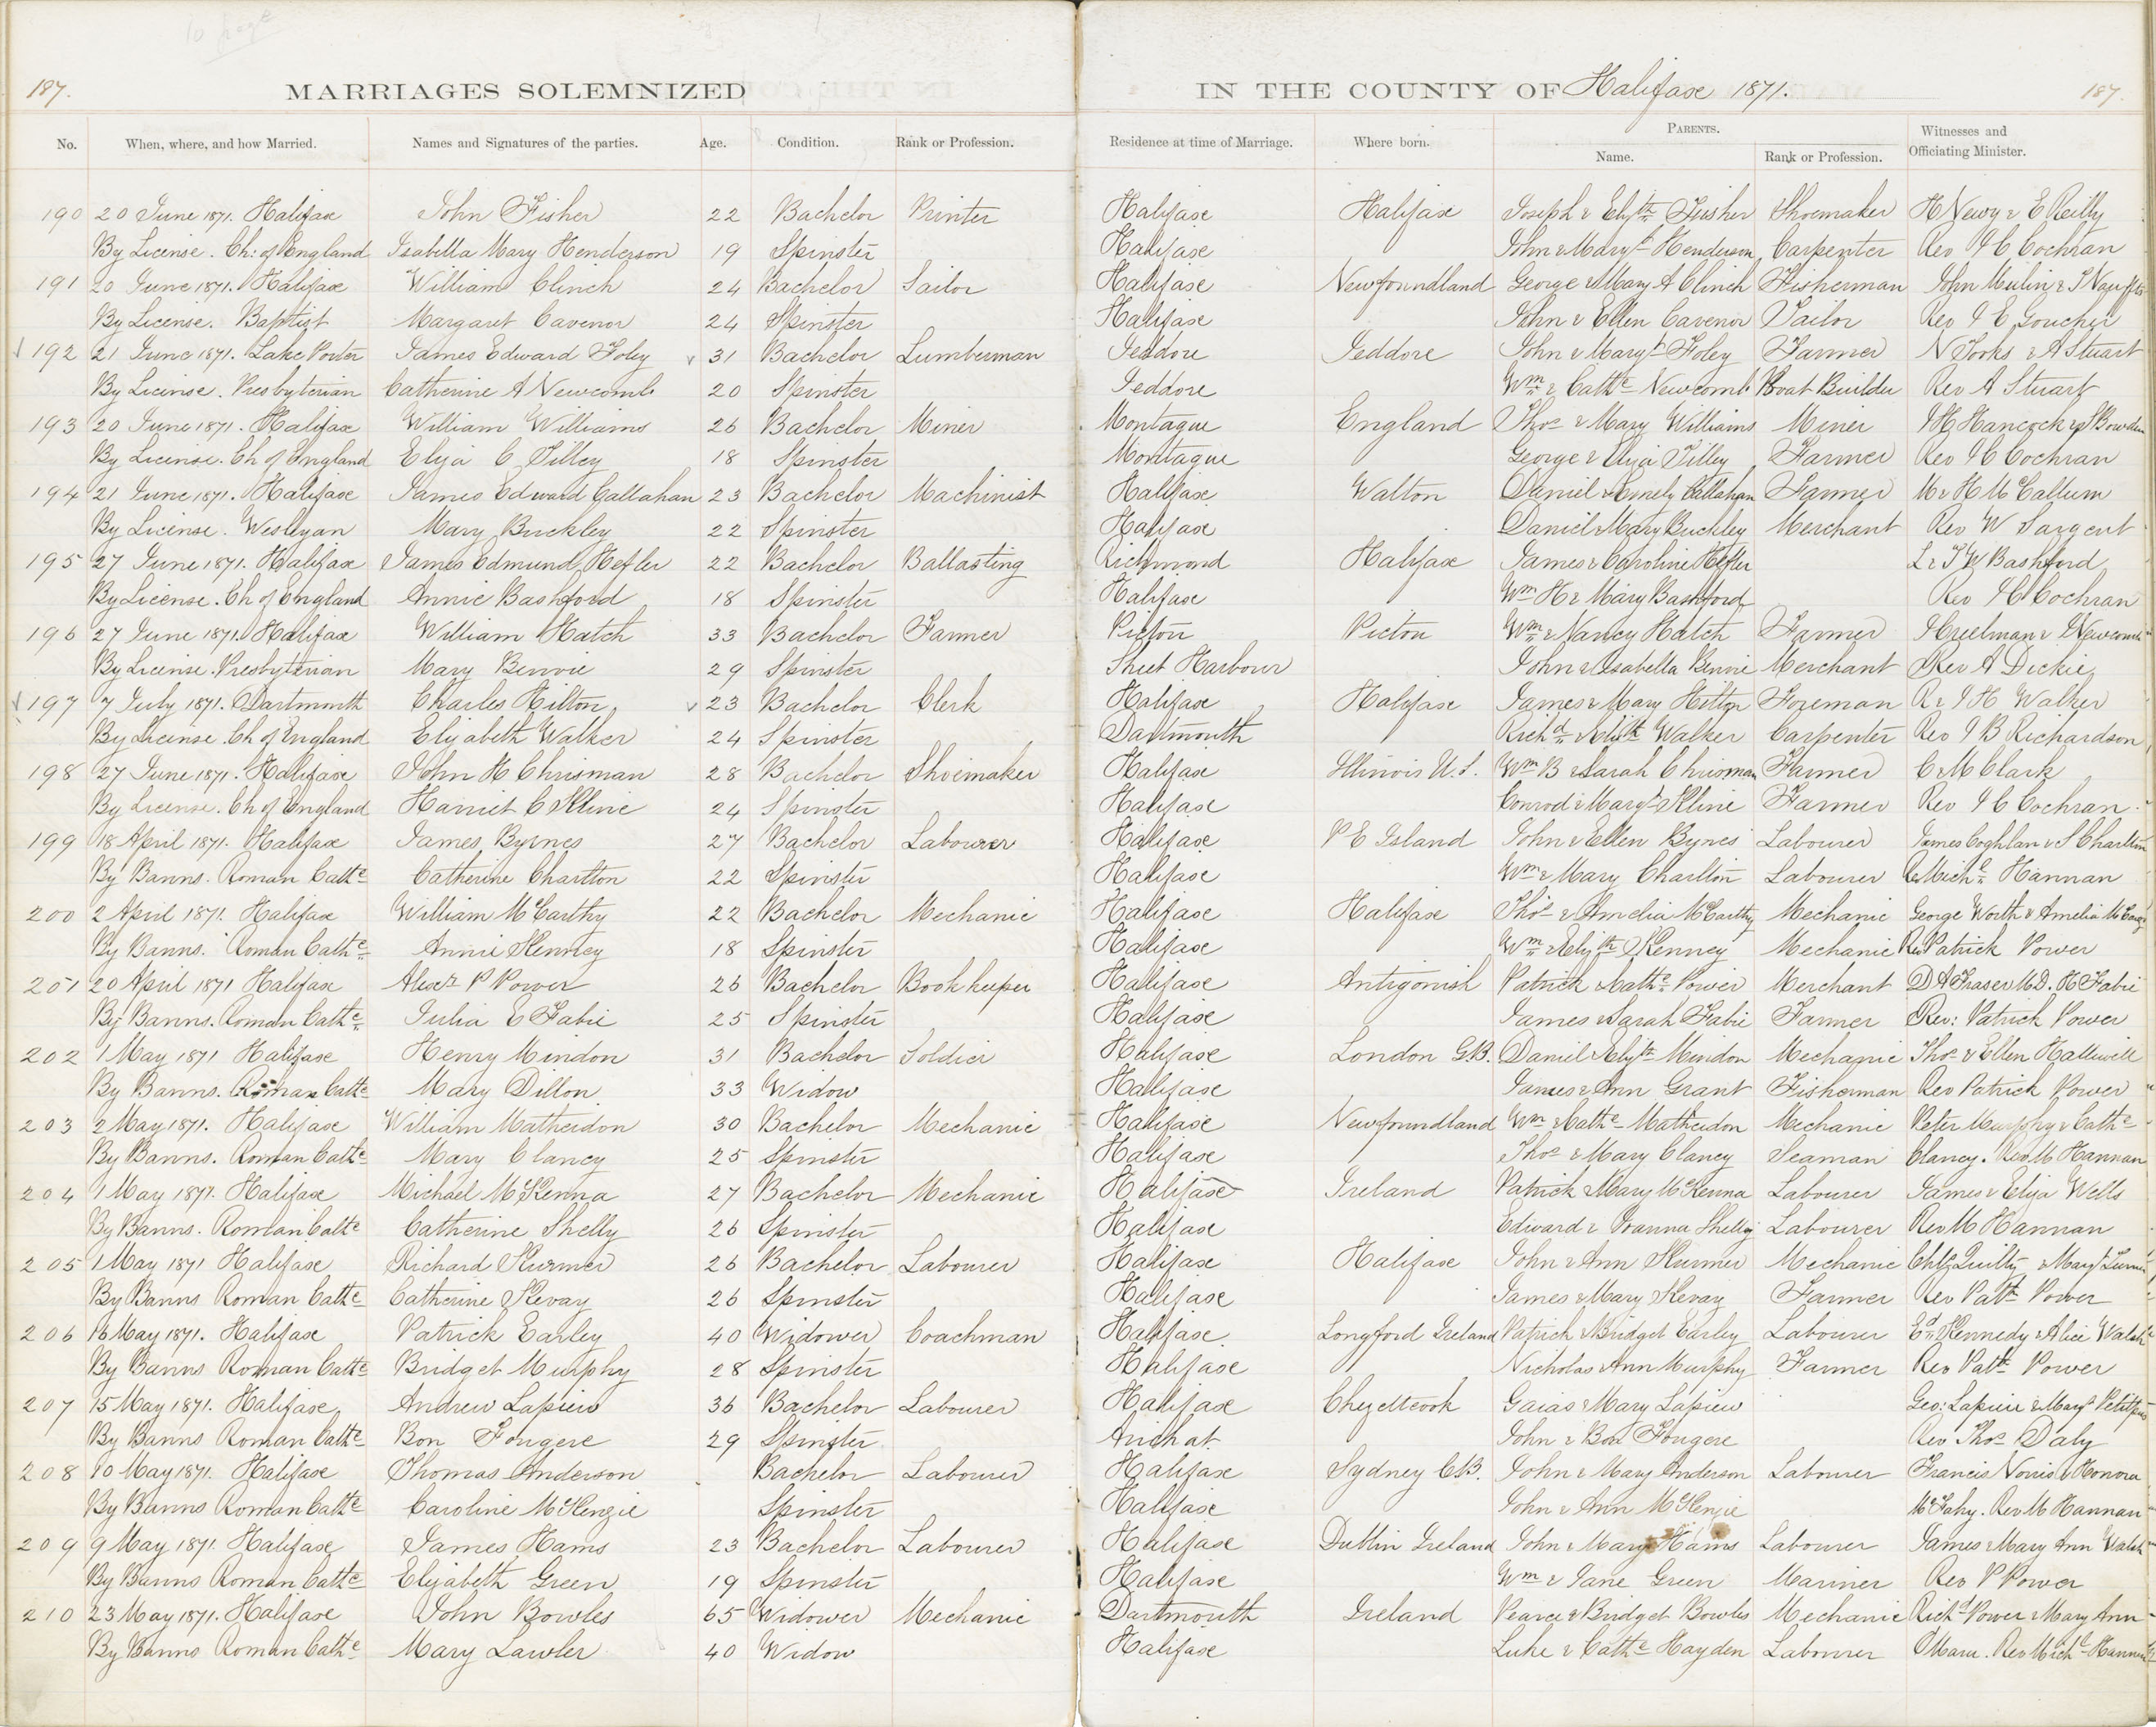 187.
MARRIAGES SOLEMNIZED IN THE COUNTY OF Halifax 1871.
187.
No. When, where, and how Married. Names and Signatures of the parties. Age. Condition. Rank or Profession. Residence at time of Marriage. Where born. PARENTS. Name. Rank or Profession. Witnesses and Officiating Minister.
190 20 June 1871. Halifax John Fisher 22 Bachelor Printer Halifax Halifax Joseph & Elizth Fisher Shoemaker H Newy & E Reilly
By License. Ch: of England Isabella Mary Henderson 19 Spinster Halifax John & Maryt Henderson Carpenter Rev J C Cochran
191 20 June 1871. Halifax William Clinch 24 Bachelor Sailor Halifax Newfoundland George & Mary A Clinch Fisherman John Mulin &
By License. Baptist Margaret Cavenor 24 Spinster Halifax John & Ellen Cavenor Tailor Rev J E Goucher
192 21 June 1871. Lake Porter James Edward Foley 31 Bachelor Lumberman Jeddore Jeddore John & Maryt Foley Farmer N Jooks & A Stuart
By License. Presbyterian Catherine A Newcomb 20 Spinster Jeddore Wm & Cathe Newcomb Boat Builder Rev A Stuart
193 20 June 1871. Halifax William Williams 26 Bachelor Miner Montague England Thos & Mary Williams Miner J H Hancock & S Bowden
By License. Ch of England Eliza C Tilley 18 Spinster Montague George & Eliza Tilley Farmer Rev J C Cochran
194 21 June 1871. Halifax James Edward Callahan 23 Bachelor Machinist Halifax Walton Daniel & Emely Callahan Farmer M & H McCallum
By License. Wesleyan Mary Buckley 22 Spinster Halifax Daniel & Mary Buckley Merchant Rev W Sargent
195 27 June 1871. Halifax James Edmund Hefler 22 Bachelor Ballasting Richmond Halifax James & Caroline Hefler L & J W Bashford
By License. Ch of England Annie Bashford 18 Spinster Halifax Wm H & Mary Bashford Rev J C Cochran
196 27 June 1871. Halifax William Hatch 33 Bachelor Farmer Picton Picton Wm & Nancy Hatch Farmer J Creelman & J Newcomb
By License. Presbyterian Mary Benvie 29 Spinster Sheet Harbour John & Isabella Benvie Merchant Rev A Dickie
197 7 July 1871. Dartmouth Charles Hilton 23 Bachelor Clerk Halifax Halifax James & Mary Hilton Foreman R & J H Walker
By License. Ch of England Elizabeth Walker 24 Spinster Dartmouth Richd & Elizth Walker Carpenter Rev J B Richardson
198 27 June 1871. Halifax John H Chrisman 28 Bachelor Shoemaker Halifax Illinois U.S. Wm B & Sarah Chrisman Farmer C & M Clark
By License. Ch of England Harriet C Kline 24 Spinster Halifax Conrod & Maryt Kline Farmer Rev J C Cochran
199 18 April 1871. Halifax James Byrnes 27 Bachelor Labourer Halifax P E Island John & Ellen Byrnes Labourer James Coghlan & S Charlton
By Banns. Roman Cathc Catherine Charlton 22 Spinster Halifax Wm & Mary Charlton Labourer Rev Michl Hannan
200 2 April 1871. Halifax William McCarthy 22 Bachelor Mechanic Halifax Halifax Thos & Amelia McCarthy Mechanic George Worth & Amelia McCarty
By Banns. Roman Cathc Annie Kenney 18 Spinster Halifax Wm & Elizth Kenney Mechanic Rev Patrick Power
201 20 April 1871 Halifax Alexr P Power 26 Bachelor Book keeper Halifax Antigonish Patrick & Cathe Power Merchant D A Fraser M.D. H Fabie
By Banns. Roman Cathc Julia E Fabie 25 Spinster Halifax James & Sarah Fabie Farmer Rev: Patrick Power
202 1 May 1871 Halifax Henry Mindon 31 Bachelor Soldier Halifax London G.B. Daniel & Elizth Mindon Mechanic Thos & Ellen Halliwill
By Banns. Roman Cathc Mary Dillon 33 Widow Halifax James & Ann Grant Fisherman Rev Patrick Power
203 2 May 1871. Halifax William Matheidon 30 Bachelor Mechanic Halifax Newfoundland Wm & Cathe Matheidon Mechanic Peter Murphy & Cathe
By Banns. Roman Cathc Mary Clancy 25 Spinster Halifax Thos & Mary Clancy Seaman Clancy. Rev M Hannan
204 1 May 1871. Halifax Michael McKenna 27 Bachelor Mechanic Halifax Ireland Patrick & Mary McKenna Labourer James & Eliza Wells
By Banns. Roman Cathc Catherine Shelly 26 Spinster Halifax Edward & Joanna Shelley Labourer Rev M Hannan
205 1 May 1871 Halifax Richard Kurmer 26 Bachelor Labourer Halifax Halifax John & Ann Kurmer Mechanic Quilty & Maryt
By Banns Roman Cathc Catherine Kevay 26 Spinster Halifax James & Mary Kevay Farmer Rev Patk Power
206 16 May 1871. Halifax Patrick Earley 40 Widower Coachman Halifax Longford Ireland Patrick & Bridget Earley Labourer Ed Kennedy & Alice Walsh
By Banns Roman Cathc Bridget Murphy 28 Spinster Halifax Nicholas & Ann Murphy Farmer Rev Patk Power
207 15 May 1871. Halifax Andrew Lapiew 36 Bachelor Labourer Halifax Chezetcook Gaias & Mary Lapiew Geo: Lapiew & Maryt Petitpas
By Banns Roman Cathc Bon Fougere 29 Spinster Arichat John & Bon Fougere Rev Thos Daly
208 10 May 1871. Halifax Thomas Anderson Bachelor Labourer Halifax Sydney C.B. John & Mary Anderson Labourer Francis Norris & Honora
By Banns Roman Cathc Caroline McKenzie Spinster Halifax John & Ann McKenzie McFahy. Rev M Hannan
209 9 May 1871. Halifax James Hams 23 Bachelor Labourer Halifax Dublin Ireland John & Mary Hams Labourer James & Mary Ann Walsh
By Banns Roman Cathc Elizabeth Green 19 Spinster Halifax Wm & Jane Green Mariner Rev P Power
210 23 May 1871. Halifax John Bowles 65 Widower Mechanic Dartmouth Ireland Pearce & Bridget Bowles Mechanic Richd Power & Mary Ann
By Banns Roman Cathc Mary Lawler 40 Widow Halifax Luke & Cathe Hayden Labourer OMara. Rev Michl Hannan